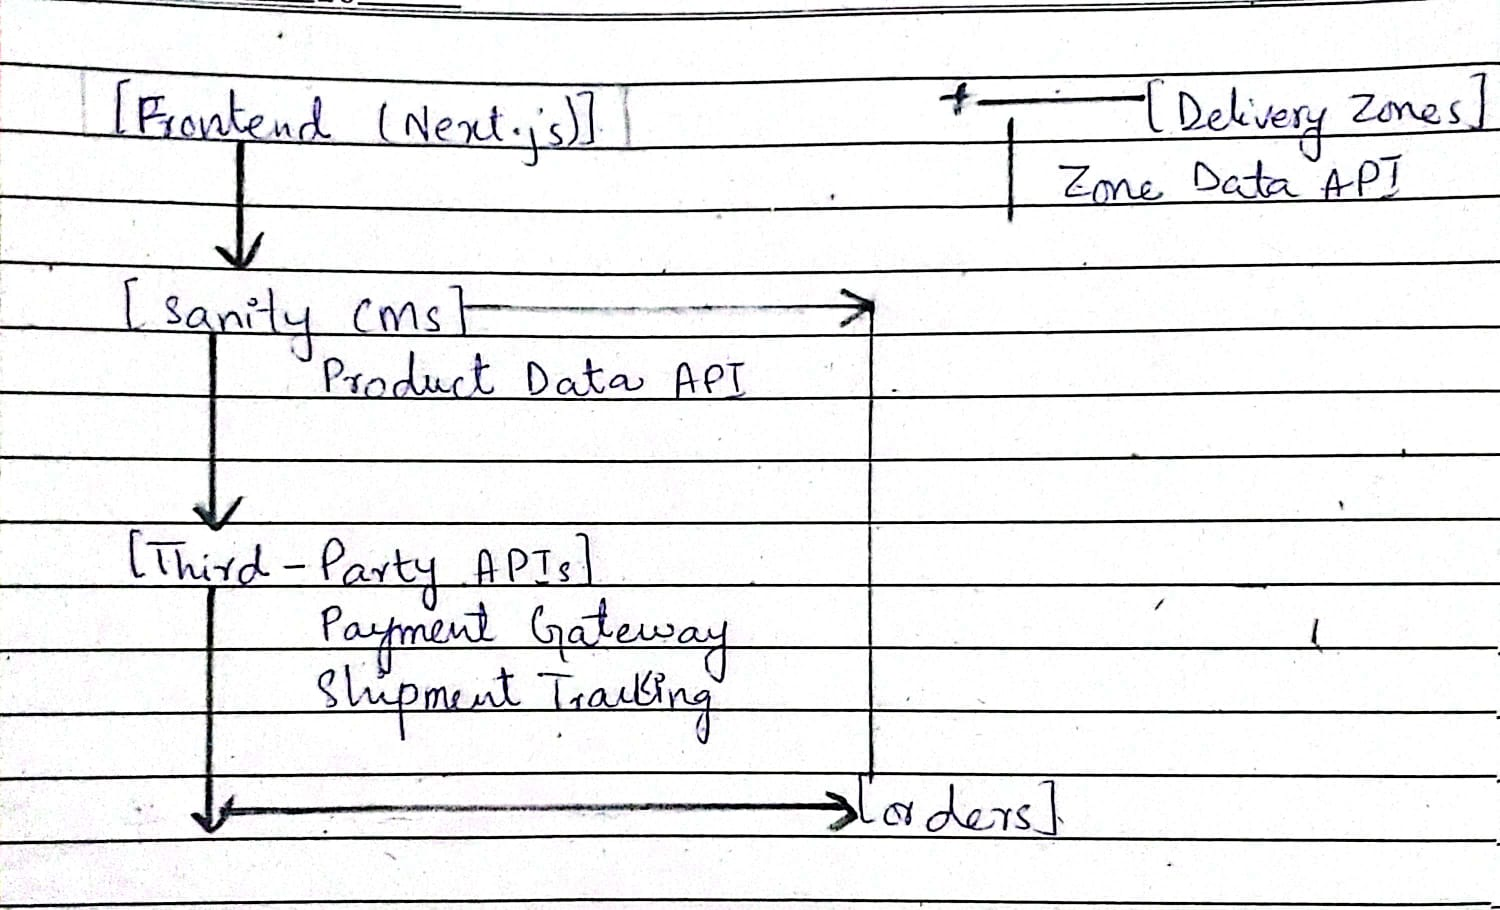 [Frontend (Next.js)]
[Delivery Zones]
Zone Data API
[Sanity CMS]
Product Data API
[Third-Party APIs]
Payment Gateway
Shipment Tracking
[orders]